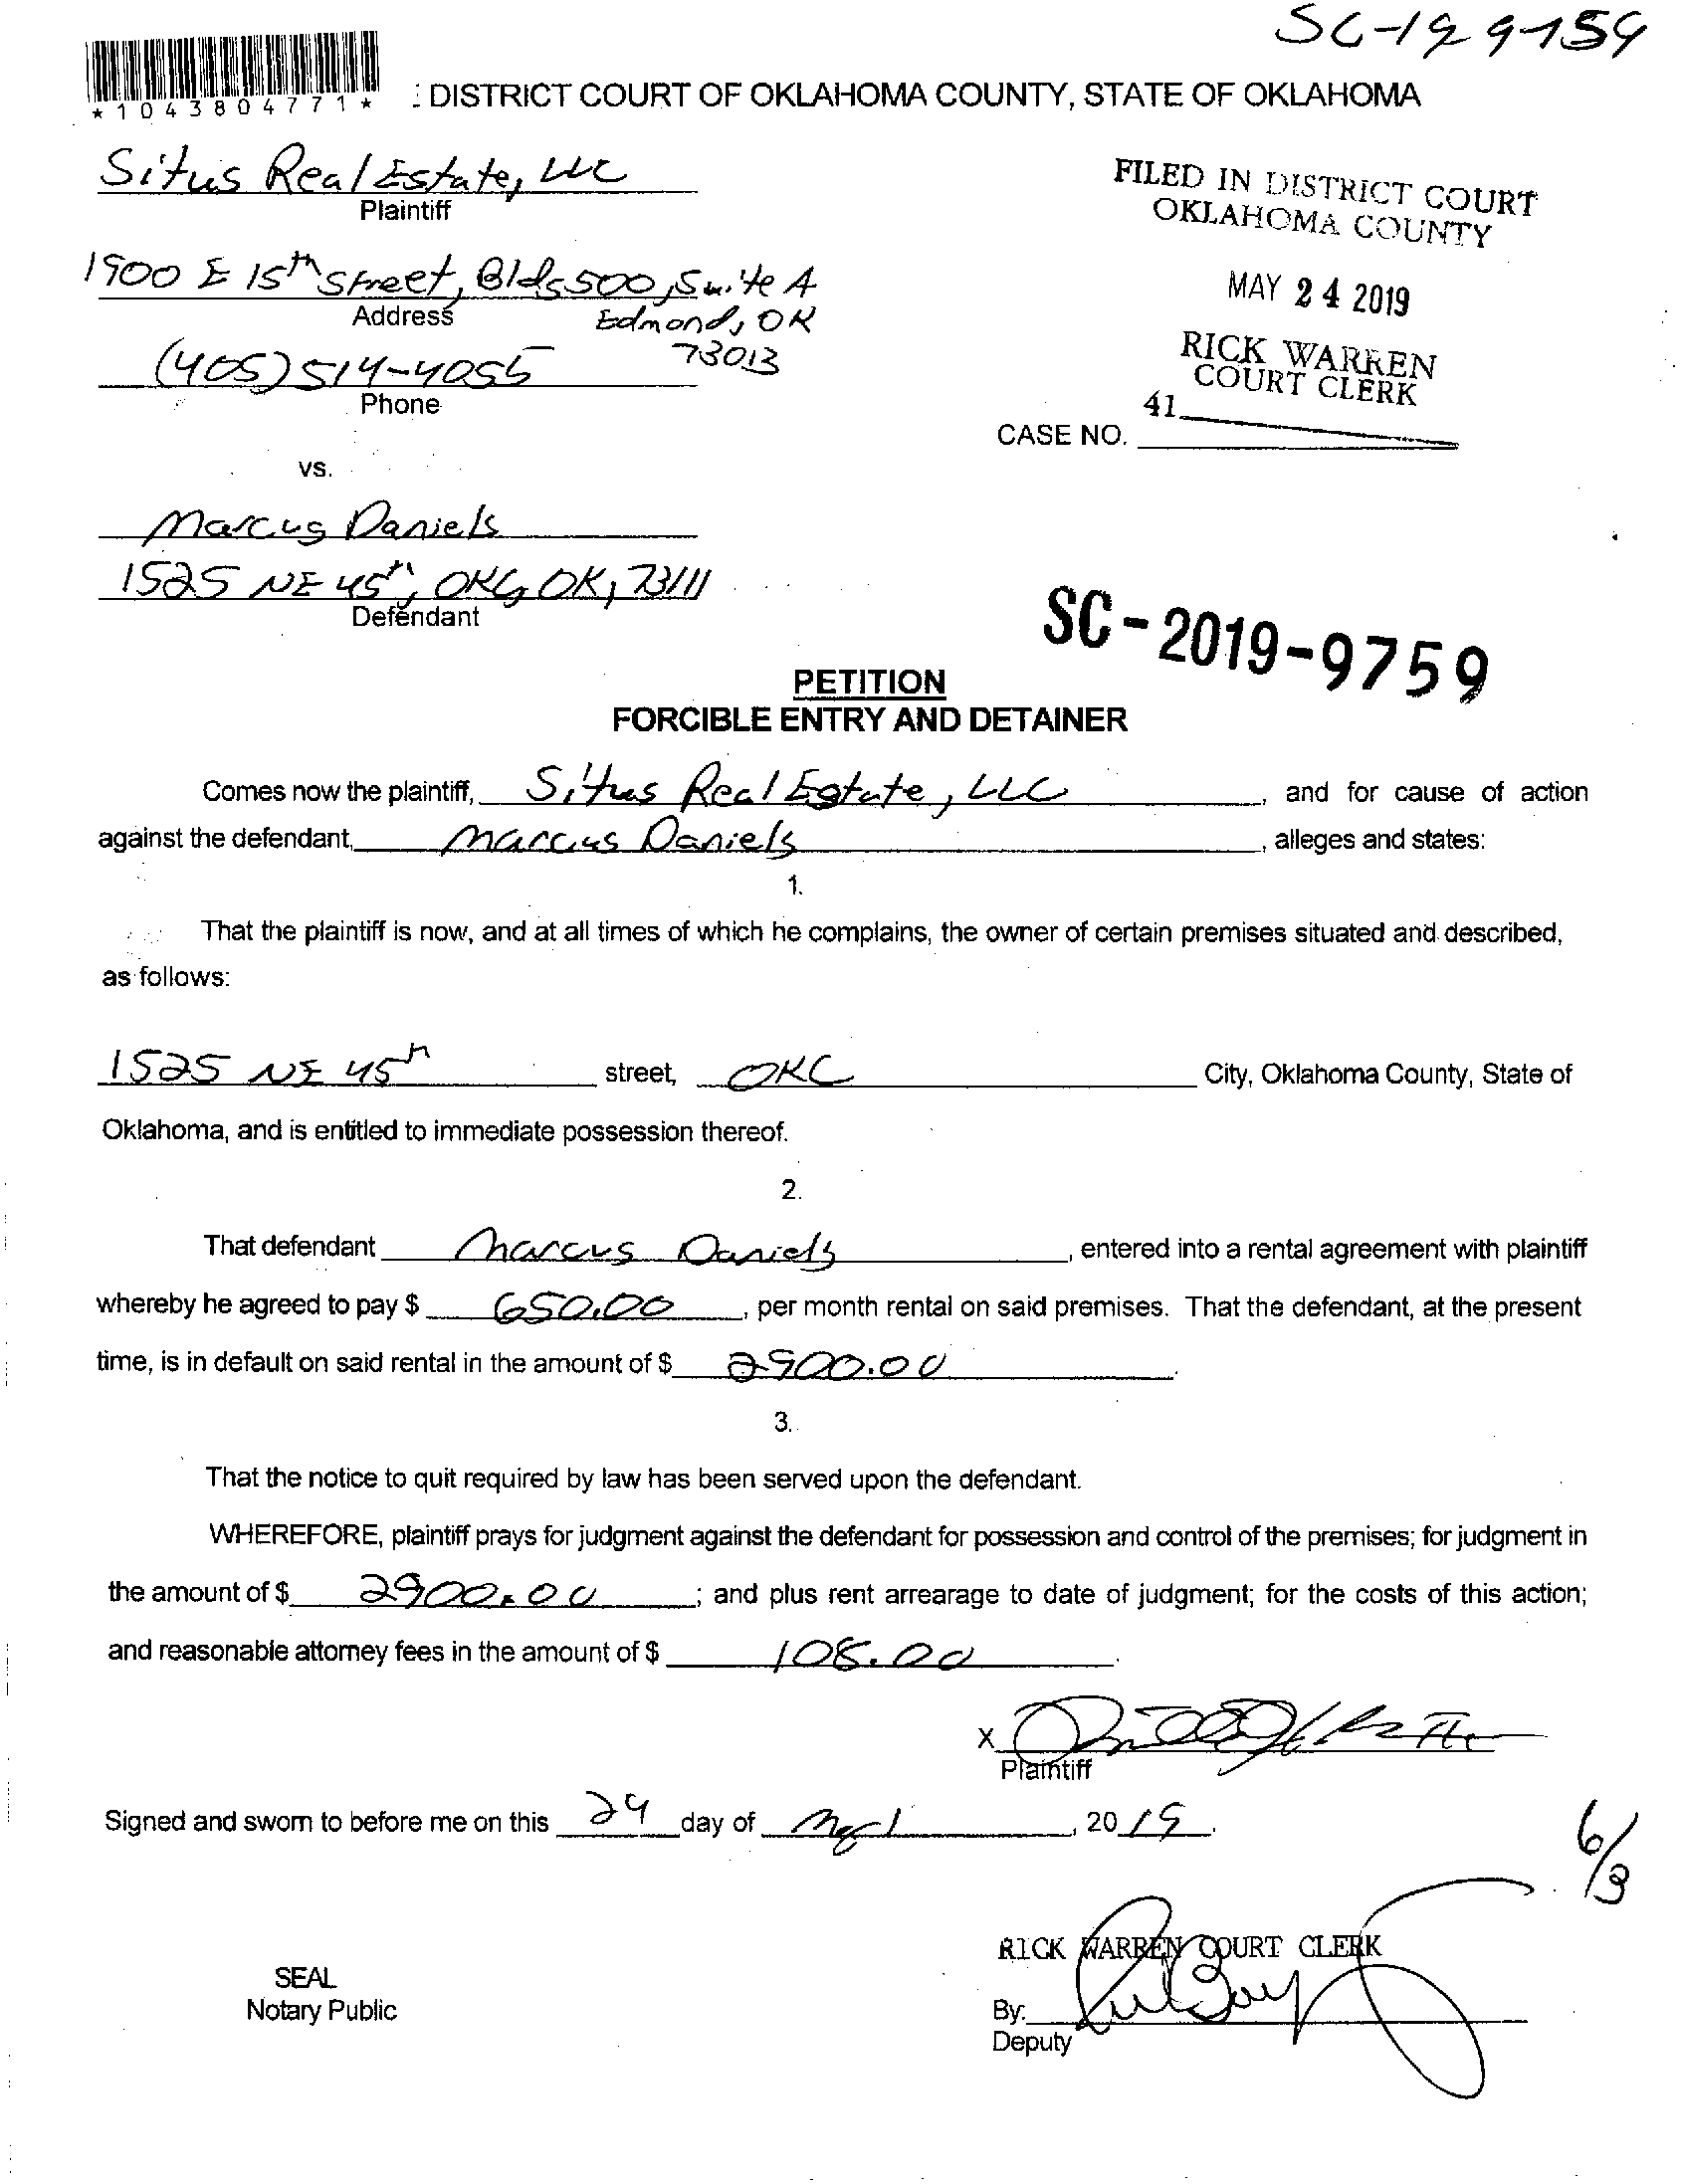 *1043804771*
: DISTRICT COURT OF OKLAHOMA COUNTY, STATE OF OKLAHOMA
Situs Real Estate, LLC
Plaintiff
FILED IN DISTRICT COURT
OKLAHOMA COUNTY
1900 E 15th Street, Bldg 500, Suite A
Address
Edmond, OK
73013
MAY 24 2019
(405) 514-4055
Phone
RICK WARREN
COURT CLERK
41
CASE NO.
vs.
Marcus Daniels
1525 NE 45th, OKC, OK, 73111
Defendant
SC-2019-9759
PETITION
FORCIBLE ENTRY AND DETAINER
Comes now the plaintiff, Situs Real Estate, LLC, and for cause of action
against the defendant, Marcus Daniels, alleges and states:
1.
That the plaintiff is now, and at all times of which he complains, the owner of certain premises situated and described,
as follows:
1525 NE 45th street, OKC City, Oklahoma County, State of
Oklahoma, and is entitled to immediate possession thereof.
2.
That defendant Marcus Daniels, entered into a rental agreement with plaintiff
whereby he agreed to pay $ 650.00, per month rental on said premises. That the defendant, at the present
time, is in default on said rental in the amount of $ 2900.00.
3.
That the notice to quit required by law has been served upon the defendant.
WHEREFORE, plaintiff prays for judgment against the defendant for possession and control of the premises; for judgment in
the amount of $ 2900.00; and plus rent arrearage to date of judgment; for the costs of this action;
and reasonable attorney fees in the amount of $ 108.00.
X
Plaintiff
Signed and sworn to before me on this 24 day of May, 2019.
6/3
RICK WARREN COURT CLERK
SEAL
Notary Public
By:
Deputy